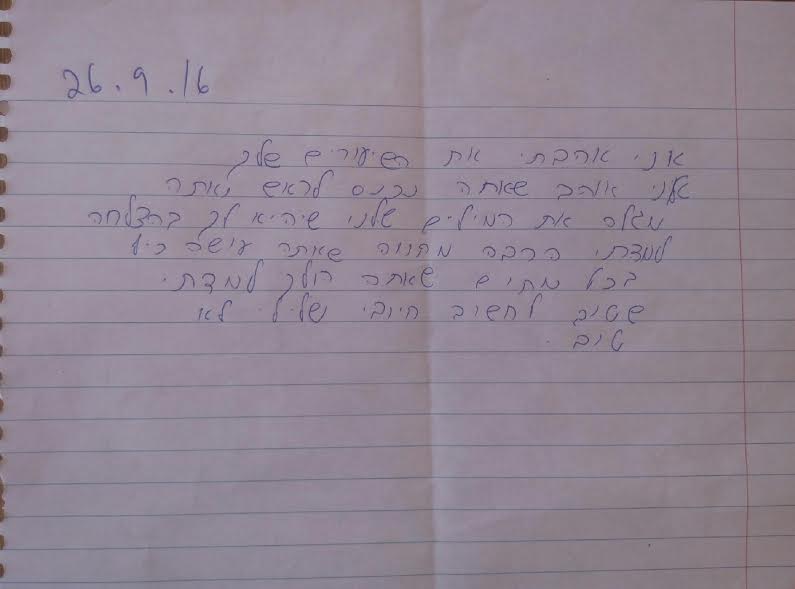 26.9.16
אני אהבתי את השיעורים שלך
אני אוהב שאתה נכנס לראש ואתה
מגלה את המילים שלני שיהיא לך בהצלחה
למדתי הרבה מקווה שאתה עושה כיף
בכל מקים שאתה הולך למדתי.
שטוב לחשוב חיובי ושלילי לא
טוב.